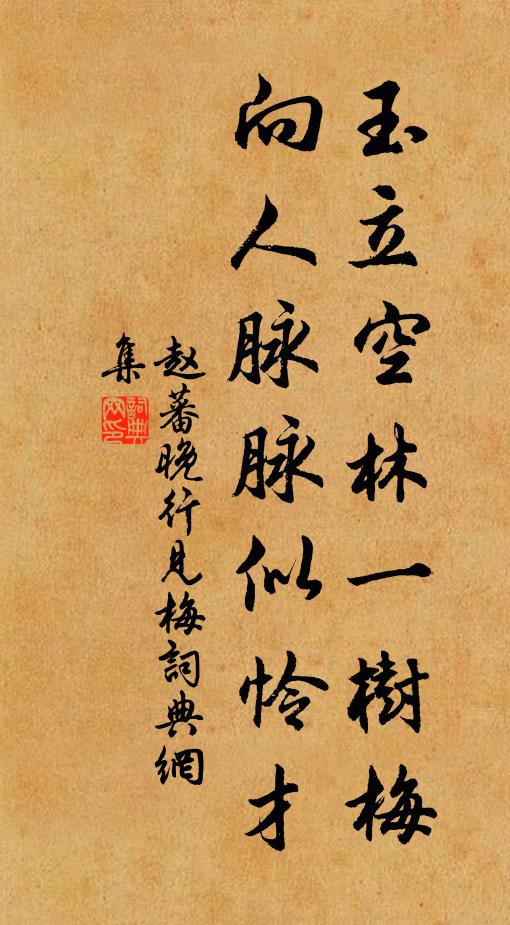 玉立空林一樹梅
向人脉脉似怜才
赵蕃晚行見梅詞典網
集
詞典网印